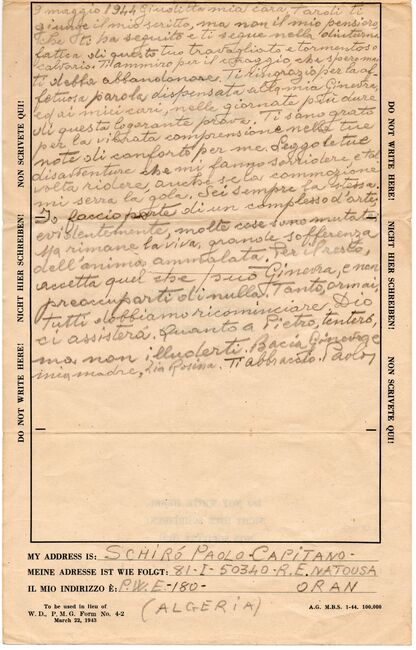 9 maggio 1944 Giuditta mia cara, Tardi ti
giunge il mio scritto, ma non il mio pensiero
che ti ha seguito e ti segue nella diuturna
fatica di questo tuo travagliato e tormentoso
calvario. T'ammiro per il coraggio, che spero mai
ti debba abbandonare. Ti ringrazio per la af-
fettuosa parola dispensata alla mia Ginevra,
ed ai miei cari, nelle giornate più dure
di questa logorante prova. Ti sono grato
per la vibrata comprensione nelle tue
note di conforto per me. Leggo le tue
disavventure che mi fanno sorridere, e tal
volta ridere, anche se la commozione
mi serra la gola. Sei sempre la stessa.
Io faccio parte di un complesso d'arte,
evidentemente, molte cose son mutate
Ma rimane la viva, grande sofferenza
dell'anima ammalata. Per il resto,
accetta quel che può Ginevra, e non
preoccuparti di nulla. Tanto, ormai,
tutti dobbiamo ricominciare. Dio
ci assisterà. Quanto a Pietro, tenterò,
ma non illuderti. Bacia Ginevra e
mia madre, zia Rosina. T'abbraccio. Paolo
NON SCRIVETE QUI!
NICHT HIER SCHREIBEN!
DO NOT WRITE HERE!
DO NOT WRITE HERE!
NICHT HIER SCHREIBEN!
NON SCRIVETE QUI!
MY ADDRESS IS: SCHIRÓ PAOLO-CAPITANO-
MEINE ADRESSE IST WIE FOLGT: 81-I-50340-R.E. NATOUSA
IL MIO INDIRIZZO È: P.W.E-180- ORAN
(ALGERIA)
To be used in lieu of
W. D., P. M. G. Form No. 4-2
March 22, 1943
A.G. M.B.S. 1-44. 100,000